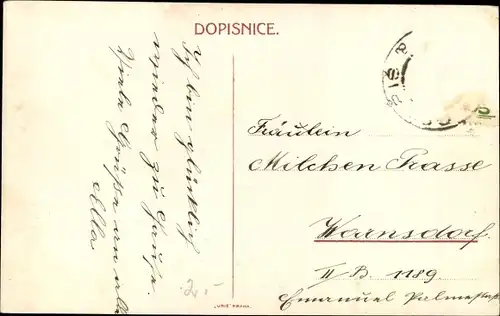 DOPISNICE.
Ich bin glücklich
wieder zu Hause.
Viele Grüße an alle
Ella
Fräulein
Milchen Prasse
Warnsdorf.
II B. 1189
Emanuel
2,-
"UNIE" PRAHA.